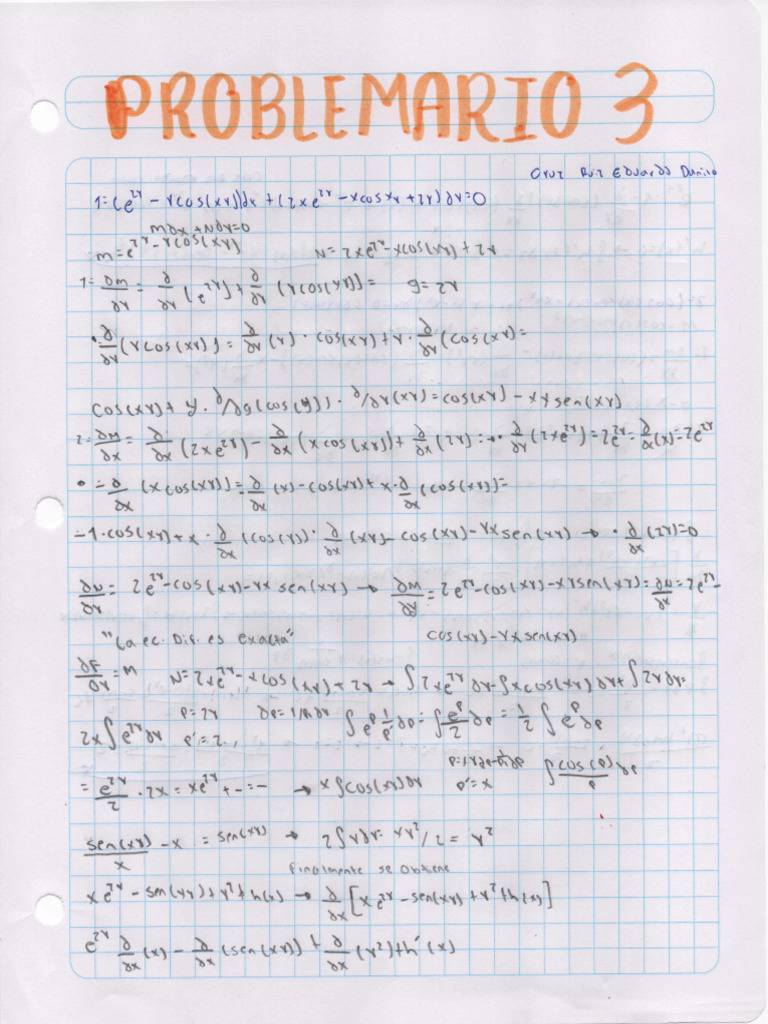 PROBLEMARIO 3
Cruz Ruiz Eduardo Danilo
1=(e^2y - ycos(xy))dx+(2xe^2y - xcosxy+2y)dy=0
Mdx+Ndy=0
M=e^2y-ycos(xy) N=2xe^2y-xcos(xy)+2y
1=∂M/∂y=∂/∂y(e^2y)+∂/∂y(ycos(xy))= g=2y
•∂/∂y(ycos(xy))=∂/∂y(y)·cos(xy)+y·∂/∂y(cos(xy)=
cos(xy)+y·∂/∂g(cos(g))·∂/∂y(xy)=cos(xy)-xysen(xy)
2=∂M/∂x=∂/∂x(2xe^2y)-∂/∂x(xcos(xy))+∂/∂x(2y)=→•∂/∂y(2xe^2y)=2e^2y=∂/∂x(x)=2e^2y
•=∂/∂x(xcos(xy))=∂/∂x(x)-cos(xy)+x·∂/∂x(cos(xy))=
-1·cos(xy)+x·∂/∂x(cos(y))·∂/∂x(xy)-cos(xy)-yxsen(xy)→·∂/∂x(2y)=0
∂N/∂y=2e^2y-cos(xy)-yx sen(xy)→∂M/∂y=2e^2y-cos(xy)-xysen(xy)=∂N/∂x=2e^2y-
"La ec. Dif. es exacta" cos(xy)-yxsen(xy)
∂F/∂y=M N=2xe^2y-xcos(xy)+2y→∫2xe^2y∂y-∫xcos(xy)∂y+∫2y∂y=
2x∫e^2y∂y P=2y P'=2. ∫e^P 1/P' ∂P=∫e^P/2 ∂P=1/2∫e^P∂P
=e^2y/2·2x=xe^2y+-=- →x∫cos(xy)∂y P'=x ∫cos(P)/P ∂P
sen(xy)/x-x=sen(xy)→2∫y∂y=xy^2/2=y^2
Finalmente se obtiene
xe^2y-sen(xy)+y^2+h(x)→∂/∂x[xe^2y-sen(xy)+y^2+h(x)]
e^2y ∂/∂x(x)-∂/∂x(sen(xy))+∂/∂x(y^2)+h'(x)